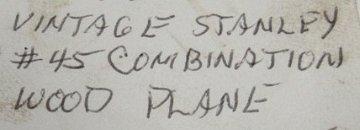 VINTAGE STANLEY
#45 COMBINATION
WOOD PLANE